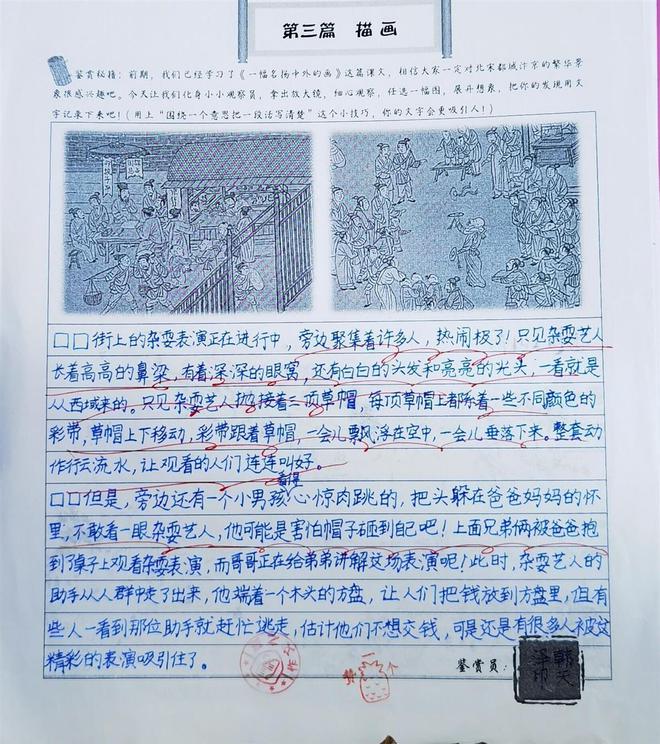 第三篇 描画
鉴赏秘籍：前期，我们已经学习了《一幅名扬中外的画》这篇课文，相信大家一定对北宋都城汴京的繁华景
象很感兴趣吧。今天让我们化身小小观察员，拿出放大镜，细心观察，任选一幅图，展开想象，把你的发现用文
字记录下来吧！（用上“围绕一个意思把一段话写清楚”这个小技巧，你的文字会更吸引人！）
口口街上的杂耍表演正在进行中，旁边聚集着许多人，热闹极了！只见杂耍艺人
长着高高的鼻梁，有着深深的眼窝，还有白白的头发和亮亮的光头，一看就是
从西域来的。只见杂耍艺人抛接着三顶草帽，每顶草帽上都除着一些不同颜色的
彩带，草帽上下移动，彩带跟着草帽，一会儿飘浮在空中，一会儿垂落下来。整套动
作行云流水，让观看的人们连连叫好。
看得
口口但是，旁边还有一个小男孩心惊肉跳的，把头躲在爸爸妈妈的怀
里，不敢看一眼杂耍艺人，他可能是害怕帽子砸到自己吧！上面兄弟俩被爸爸抱
到了桌子上观看杂耍表演，而哥哥正在给弟弟讲解这场表演呢！此时，杂耍艺人的
助手从人群中走了出来，他端着一个木头的方盘，让人们把钱放到方盘里，但有
些人一看到那位助手就赶忙逃走，估计他们不想交钱，可是还是有很多人被这
精彩的表演吸引住了。
鉴赏员：